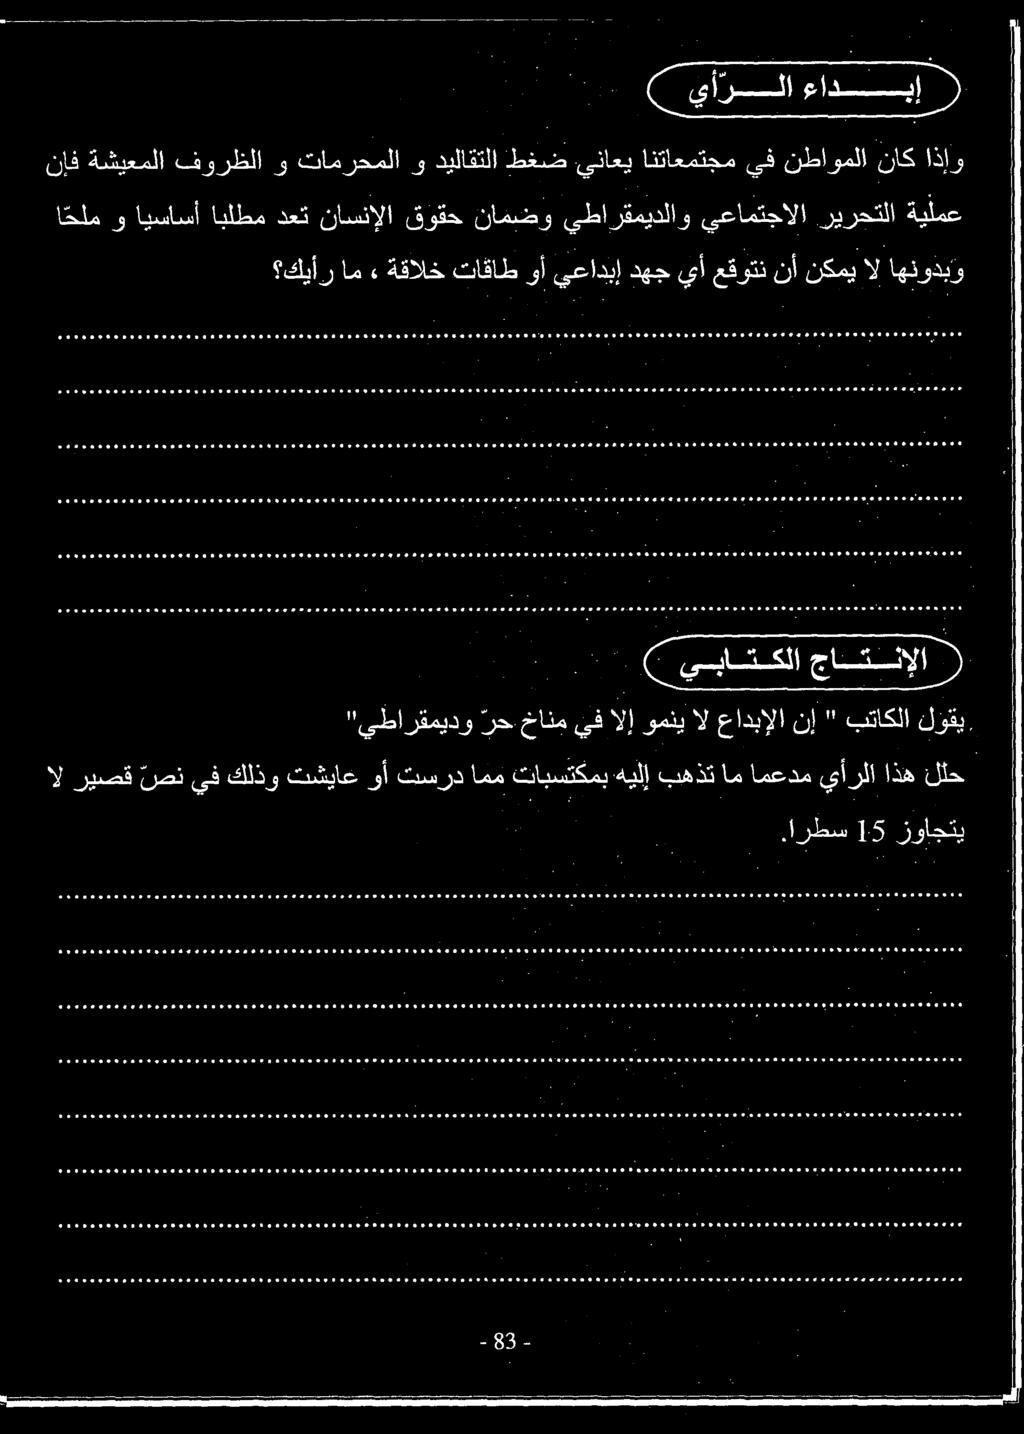 إبداء الرّأي
وإذا كان المواطن في مجتمعاتنا يعاني ضغط التقاليد و المحرمات و الظروف المعيشة فإن
عملية التحرير الاجتماعي والديمقراطي وضمان حقوق الإنسان تعد مطلبا أساسيا و ملحّا
وبدونها لا يمكن أن نتوقع أي جهد إبداعي أو طاقات خلاقة ، ما رأيك؟
الإنتاج الكتابي
يقول الكاتب " إن الإبداع لا ينمو إلا في مناخ حرّ وديمقراطي"
حلل هذا الرأي مدعما ما تذهب إليه بمكتسبات مما درست أو عايشت وذلك في نصّ قصير لا
يتجاوز 15 سطرا.
- 83 -